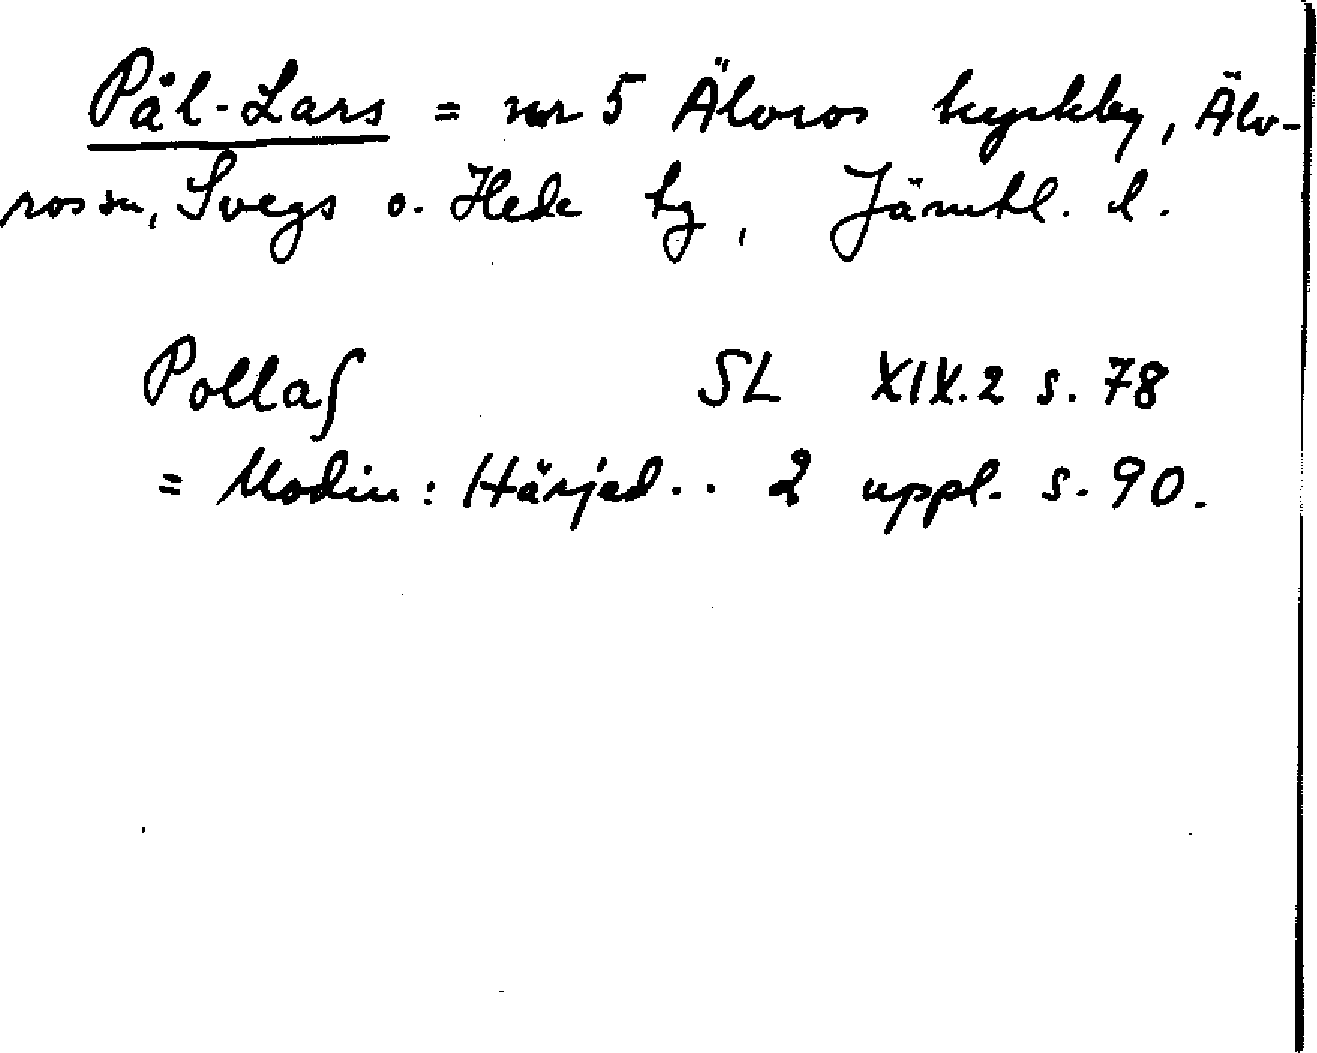 Pål-Lars = nr 5 Älvros kyrkby, Älv-
ros sn, Svegs o. Hede tg, Jämtl. l.
Pollaʃ SL XIX.2 s. 78
= Modin: Härjed.. 2 uppl. s. 90.